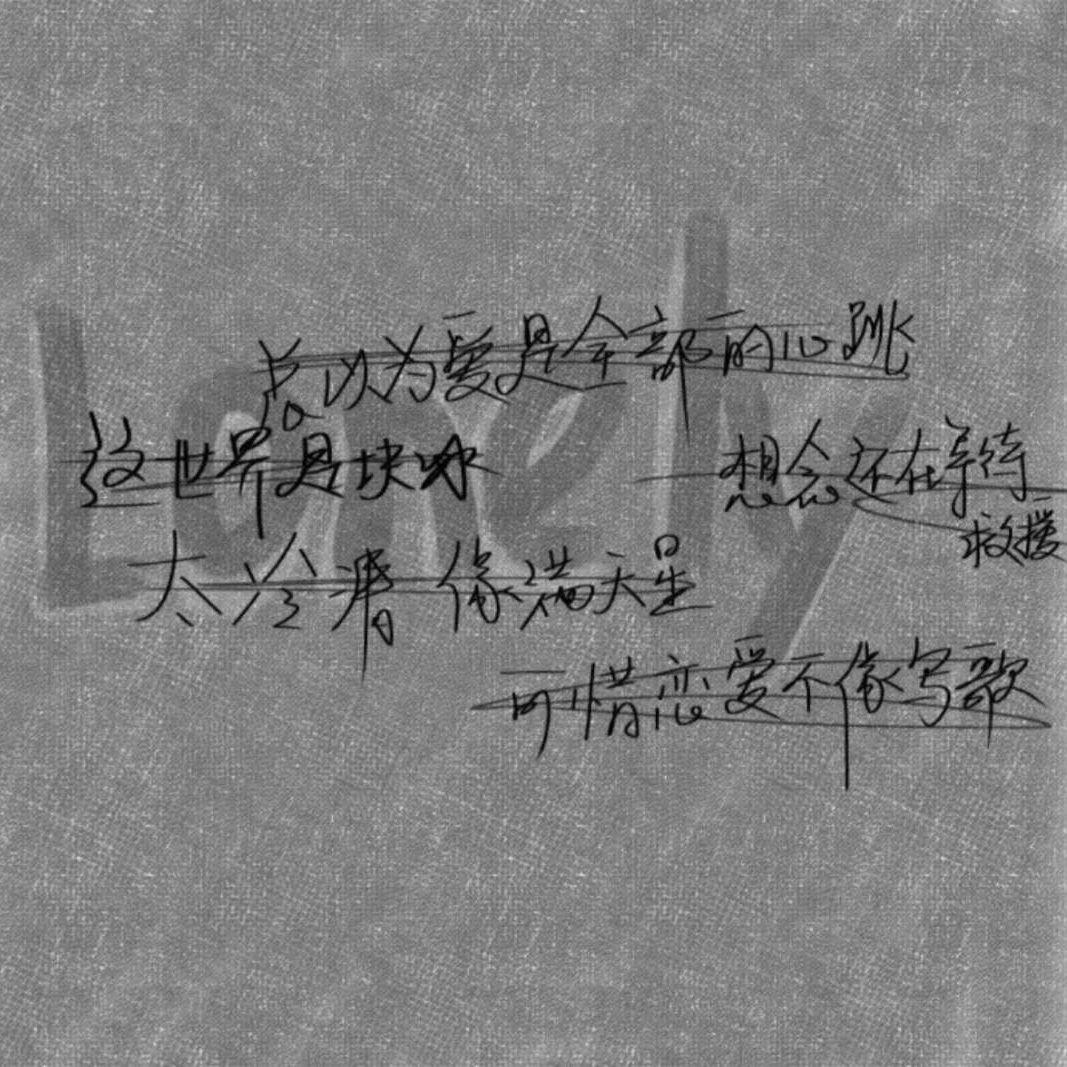 Lonely
总以为爱是全部的心跳
这世界是块冰
想念还在等待
救援
太冷清 像满天星
可惜恋爱不像写歌